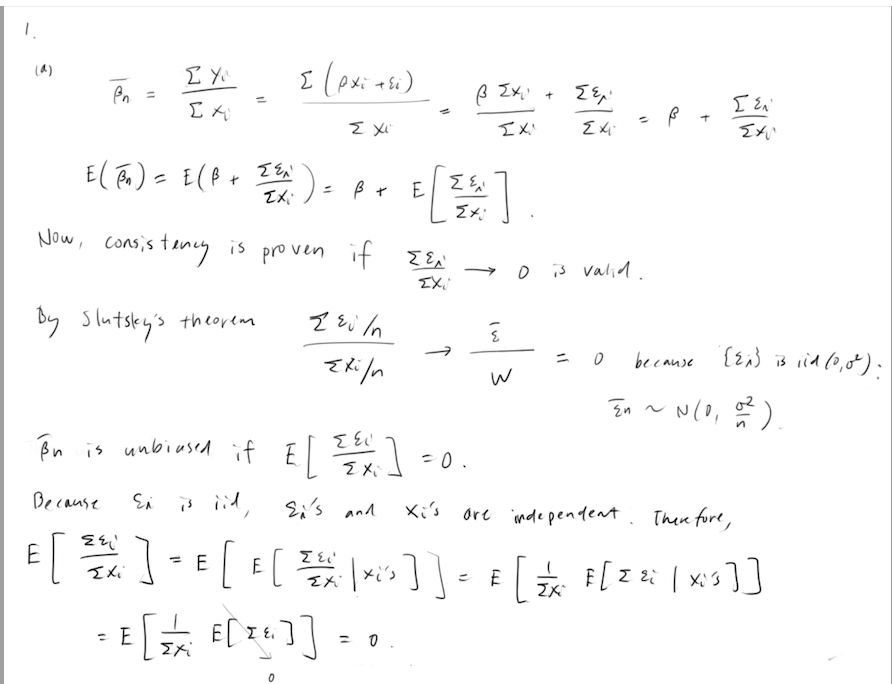 1.
(a) β̄n = Σ Yi / Σ Xi = Σ (βxi + εi) / Σ Xi = β Σxi / Σxi + Σεi / Σxi = β + Σ εi / Σxi
E(β̄n) = E(β + Σεi / Σxi) = β + E[Σεi / Σxi].
Now, consistency is proven if Σεi / Σxi → 0 is valid.
By Slutsky's theorem Σ εi/n / Σxi/n → ε̄ / W = 0 because {εi} is iid (0,σ²):
ε̄n ~ N(0, σ²/n).
β̄n is unbiased if E[Σεi / Σxi] = 0.
Because εi is iid, εi's and xi's are independent. Therefore,
E[Σεi / Σxi] = E[E[Σεi / Σxi | xi's]] = E[1/Σxi E[Σεi | xi's]]
= E[1/Σxi E[Σεi]] = 0.
0